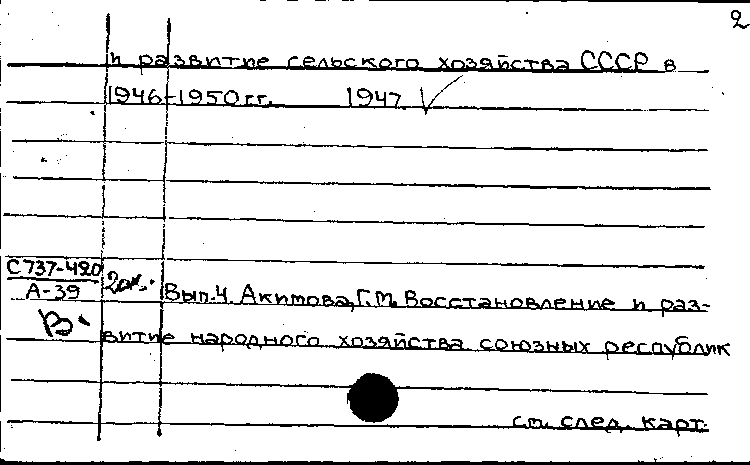 2
и развитие сельского хозяйства СССР в
1946-1950 гг. 1947
С737-420
А-39
2эк.
Вып.4. Акимова, Г.М. Восстановление и раз-
В.
витие народного хозяйства союзных республик
см. след. карт.